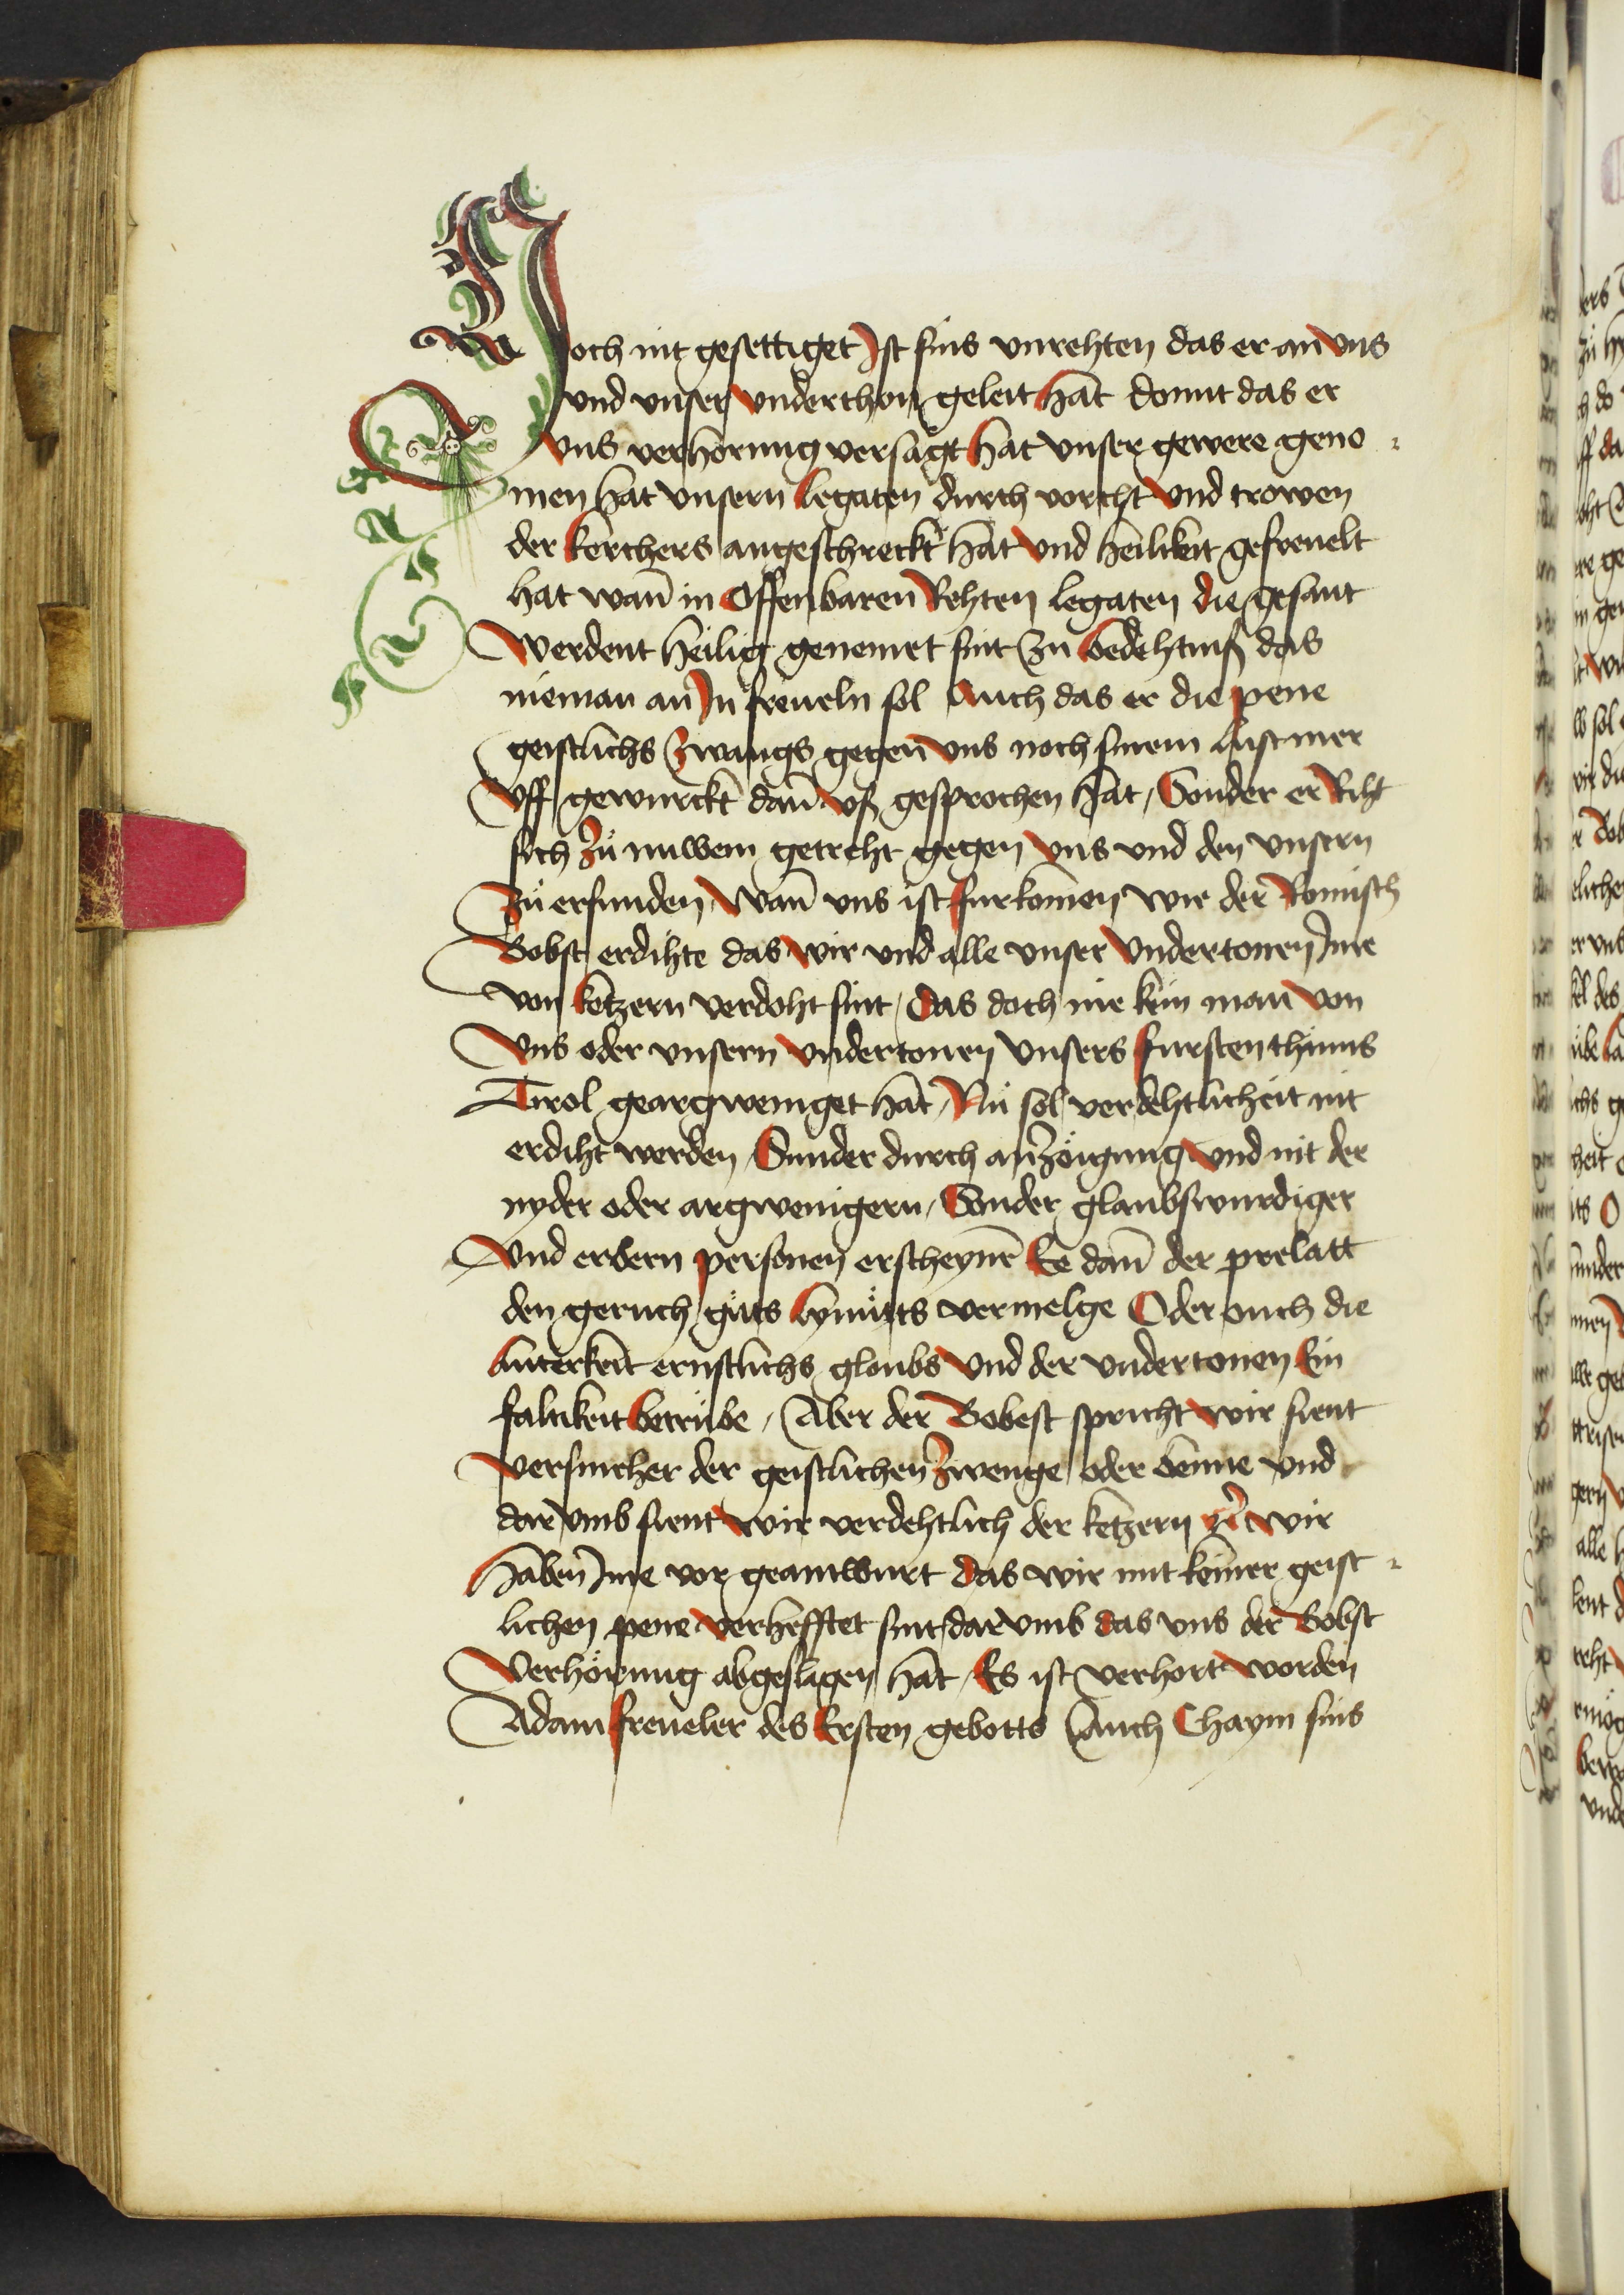 Noch nit gesettiget Ist sins vnrehten das er an vns
vnd vnser vnderthon geleit hat domit das er
vns verhörung versagt hat vnser gewere geno
men hat vnsern legaten durch vorcht vnd trowen
der kerchers angeschreckt hat vnd heilikeit gefreuelt
hat wan̄ in Offenbaren Rehten legaten die gesant
werdent heilig genennet sint zu bedehtniß das
nieman an In freueln sol Auch das er die pene
geistlichs zwangs gegen vns noch sinem lust mer
vff gewurckt dan̄ vß gesprochen hat, Sonder er Riht
sich zů nuwem getreht gegen vns vnd den vnsern
zů erfunden, wan̄ vns ist furkomen wie der Romisch
Bobst erdihte das wir vnd alle vnser vndertonen Ime
von ketzern verdoht sint, Das doch nie kein man von
vns oder vnsern vndertonen vnsers furstenthums
Tirol geargweniget hat, Nů sol verdehtlicheit nit
erdiht werden, Sunder durch anzöigung vnd nit der
nyder oder argwenigern, Sonder glaubswurdiger
vnd erbern personen erscheynē Ee dan̄ der prelatt
den geruch gůts lymůts vermelge Oder ouch die
luterkeit ernstlichs gloubs vnd der vndertonen Ein
faltikeit betrübe, Aber der Bobest spricht wir sient
versmeher der geistlichen zwenge oder benne vnd
dar vmb sient wir verdehtlich der ketzern wir
haben Ime vor geantwurt das wir mit keiner geist
lichen pene verhefftet sint, dar vmb das vns der Bobst
Verhörung abgeslagen hat, Es ist verhort worden
Adam freueler des Ersten gebotts Auch Chaym sins